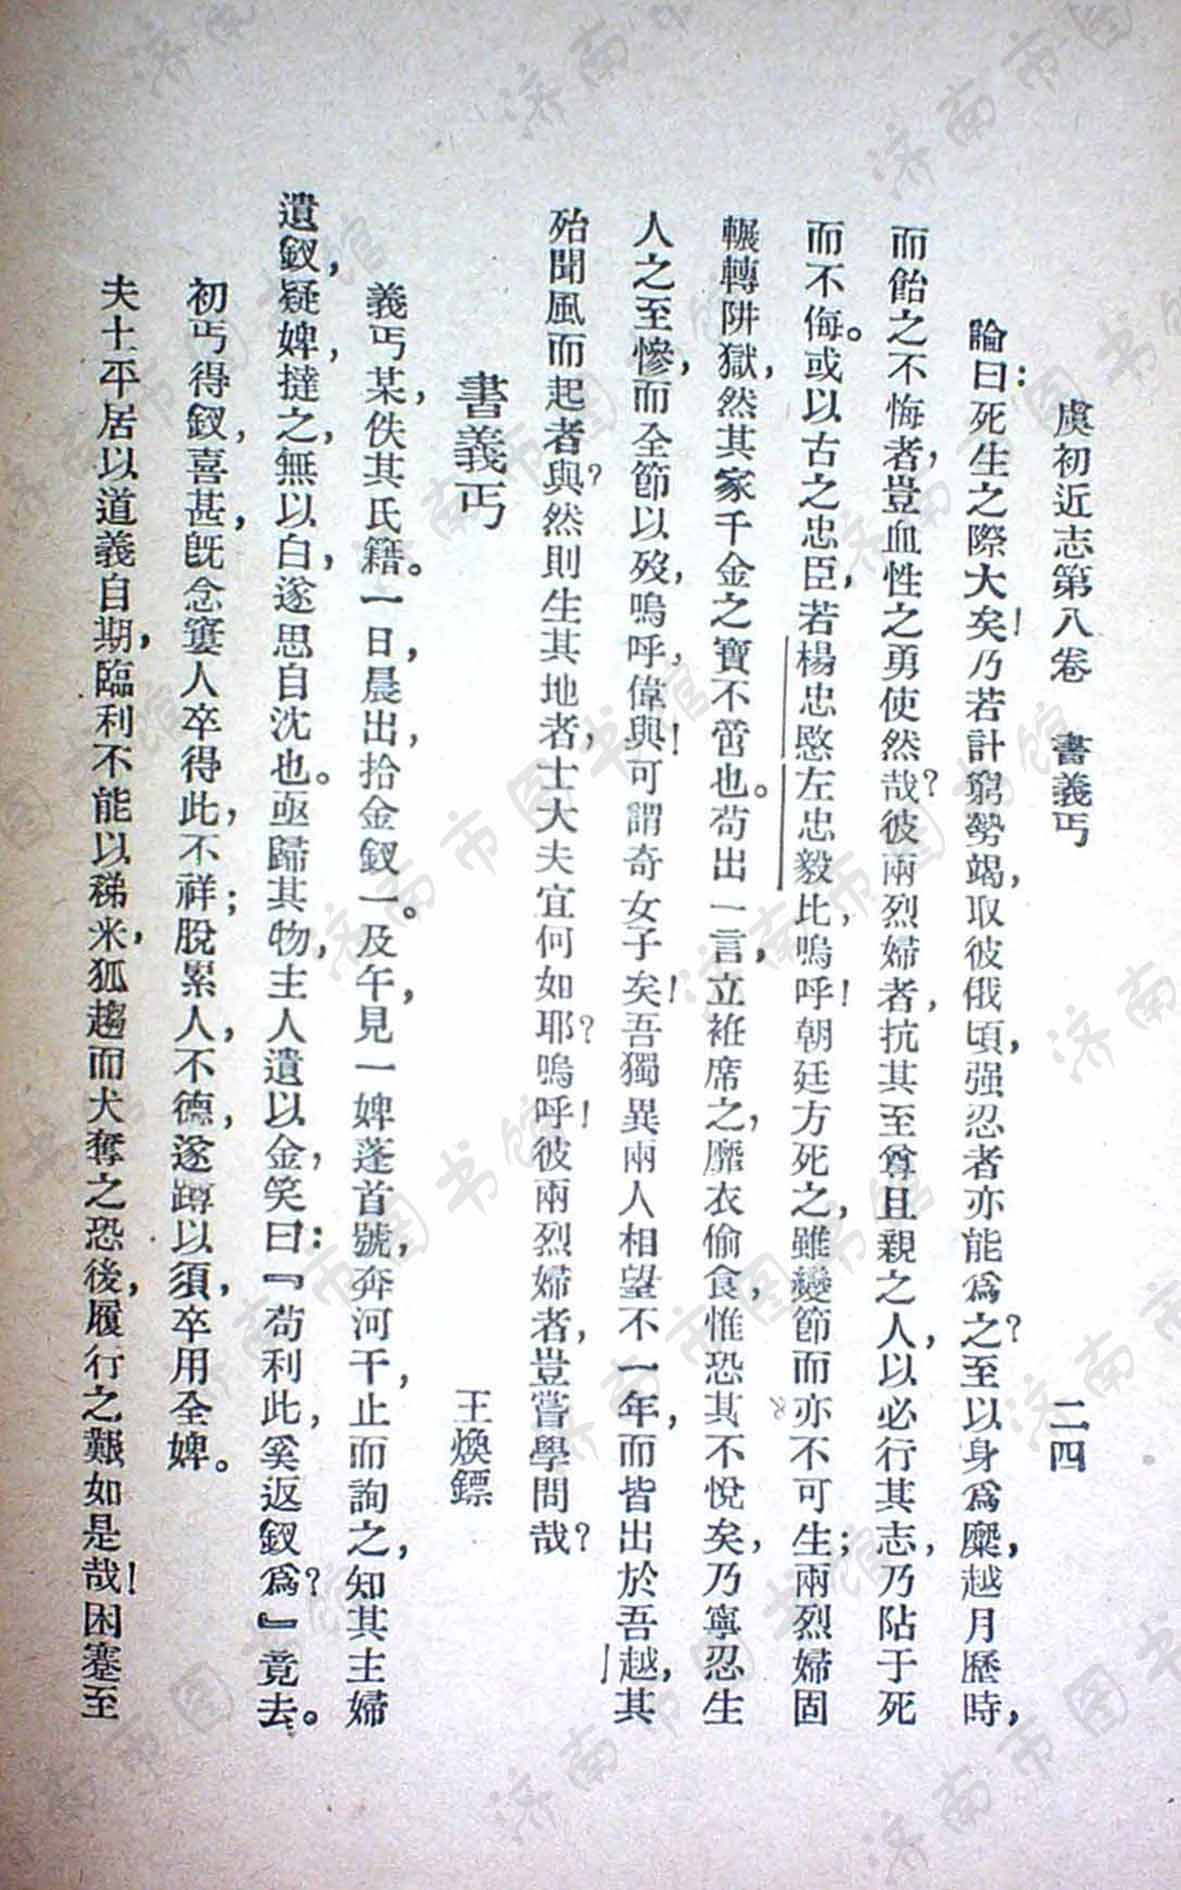 虞初近志第八卷　書義丐　二四
論曰：死生之際大矣！乃若計窮勢竭，取彼俄頃，强忍者亦能爲之？至以身爲糜，越月歷時，
而飴之不悔者，豈血性之勇使然哉？彼兩烈婦者，抗其至尊且親之人，以必行其志，乃阽于死
而不侮。或以古之忠臣，若楊忠愍左忠毅比，嗚呼！朝廷方死之，雖變節而亦不可生；兩烈婦固
輾轉阱獄，然其家千金之寶不啻也。苟出一言，立袵席之，靡衣偷食，惟恐其不悅矣，乃寧忍生
人之至慘，而全節以歿，嗚呼，偉與！可謂奇女子矣！吾獨異兩人相望不一年，而皆出於吾越，其
殆聞風而起者與？然則生其地者，士大夫宜何如耶？嗚呼！彼兩烈婦者，豈嘗學問哉？
書義丐　王煥鑣
義丐某，佚其氏籍。一日，晨出，拾金釵一。及午，見一婢蓬首號，奔河干，止而詢之，知其主婦
遺釵，疑婢，撻之，無以白，遂思自沈也。亟歸其物，主人遺以金，笑曰：『苟利此，奚返釵爲？』竟去。
初丐得釵，喜甚，旣念窶人卒得此，不祥；脫累人，不德，遂蹲以須，卒用全婢。
夫士平居以道義自期，臨利不能以稊米，狐趨而犬奪之恐後，履行之艱如是哉！困蹇至
济南市图书馆